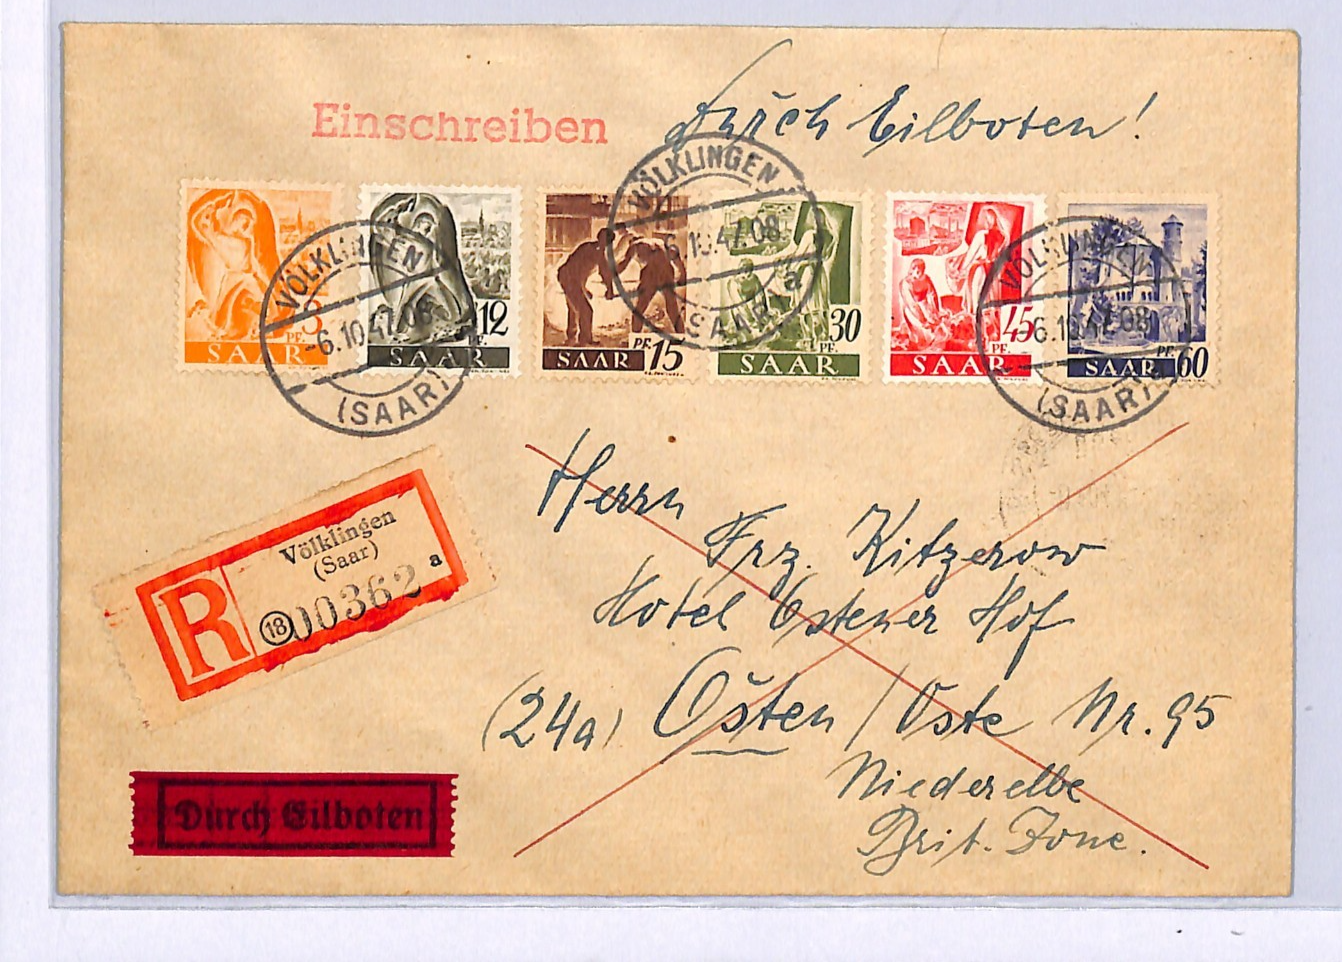 Einschreiben
Durch Eilboten!
3 PF. SAAR
12 PF. SAAR
PF. 15 SAAR
30 PF. SAAR
45 PF. SAAR
PF. 60 SAAR
VÖLKLINGEN
-6.10.47.08
(SAAR)
VÖLKLINGEN
-6.10.47.08
(SAAR) a
VÖLKLINGEN
-6.10.47.08
(SAAR)
Herrn
Frz. Kitzerow
Hotel Ostener Hof
(24a) Osten / Oste Nr. 95
Niederelbe
Brit. Zone.
R
Völklingen
(Saar)
a
18 00362
Durch Eilboten